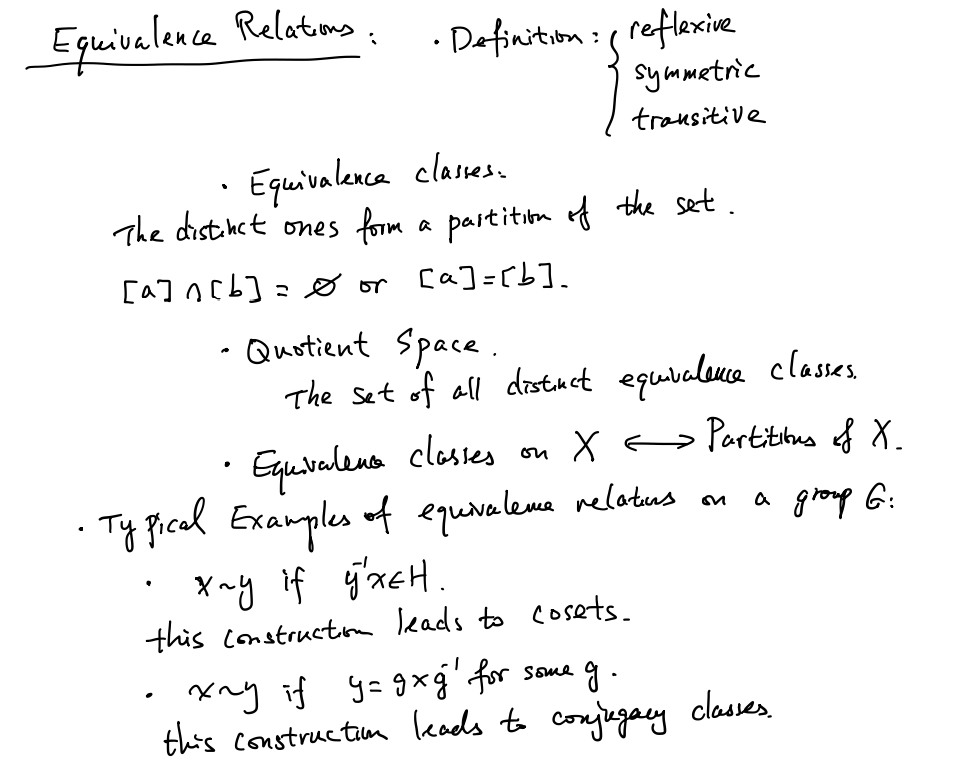 Equivalence Relations: · Definition: { reflexive
symmetric
transitive
· Equivalence classes.
The distinct ones form a partition of the set.
[a]∩[b] = ∅ or [a]=[b].
· Quotient Space.
The set of all distinct equivalence classes.
· Equivalence classes on X ⟷ Partitions of X.
· Typical Examples of equivalence relations on a group G:
· x~y if y⁻¹x∈H.
this construction leads to cosets.
· x~y if y=gxg⁻¹ for some g.
this construction leads to conjugacy classes.